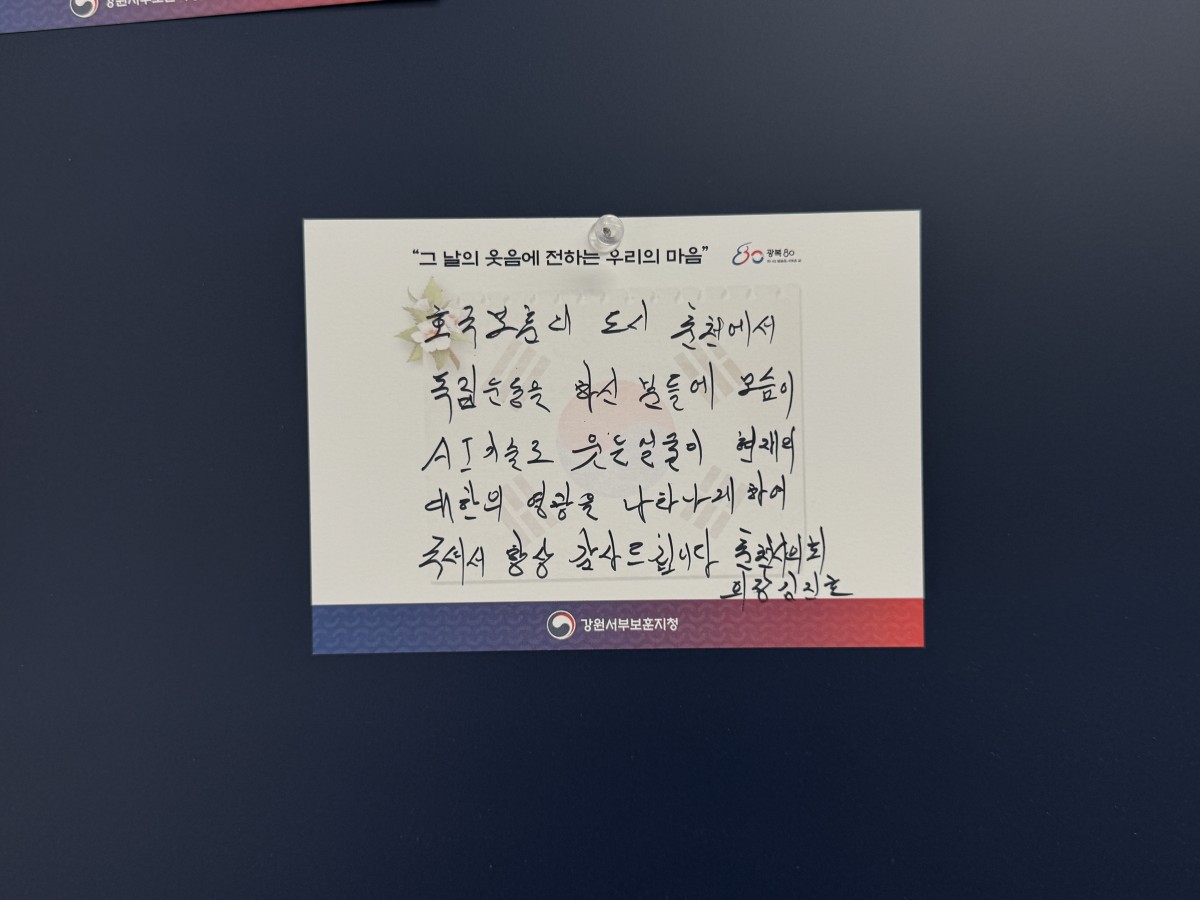 강원서부보훈지청
“그 날의 웃음에 전하는 우리의 마음”
광복 80
호국보훈의 도시 춘천에서
독립운동을 하신 분들에 모습이
AI기술로 웃는얼굴이 현재의
대한의 영광을 나타나게 하여
주셔서 항상 감사드립니다 춘천시의회
의장 김진호
강원서부보훈지청